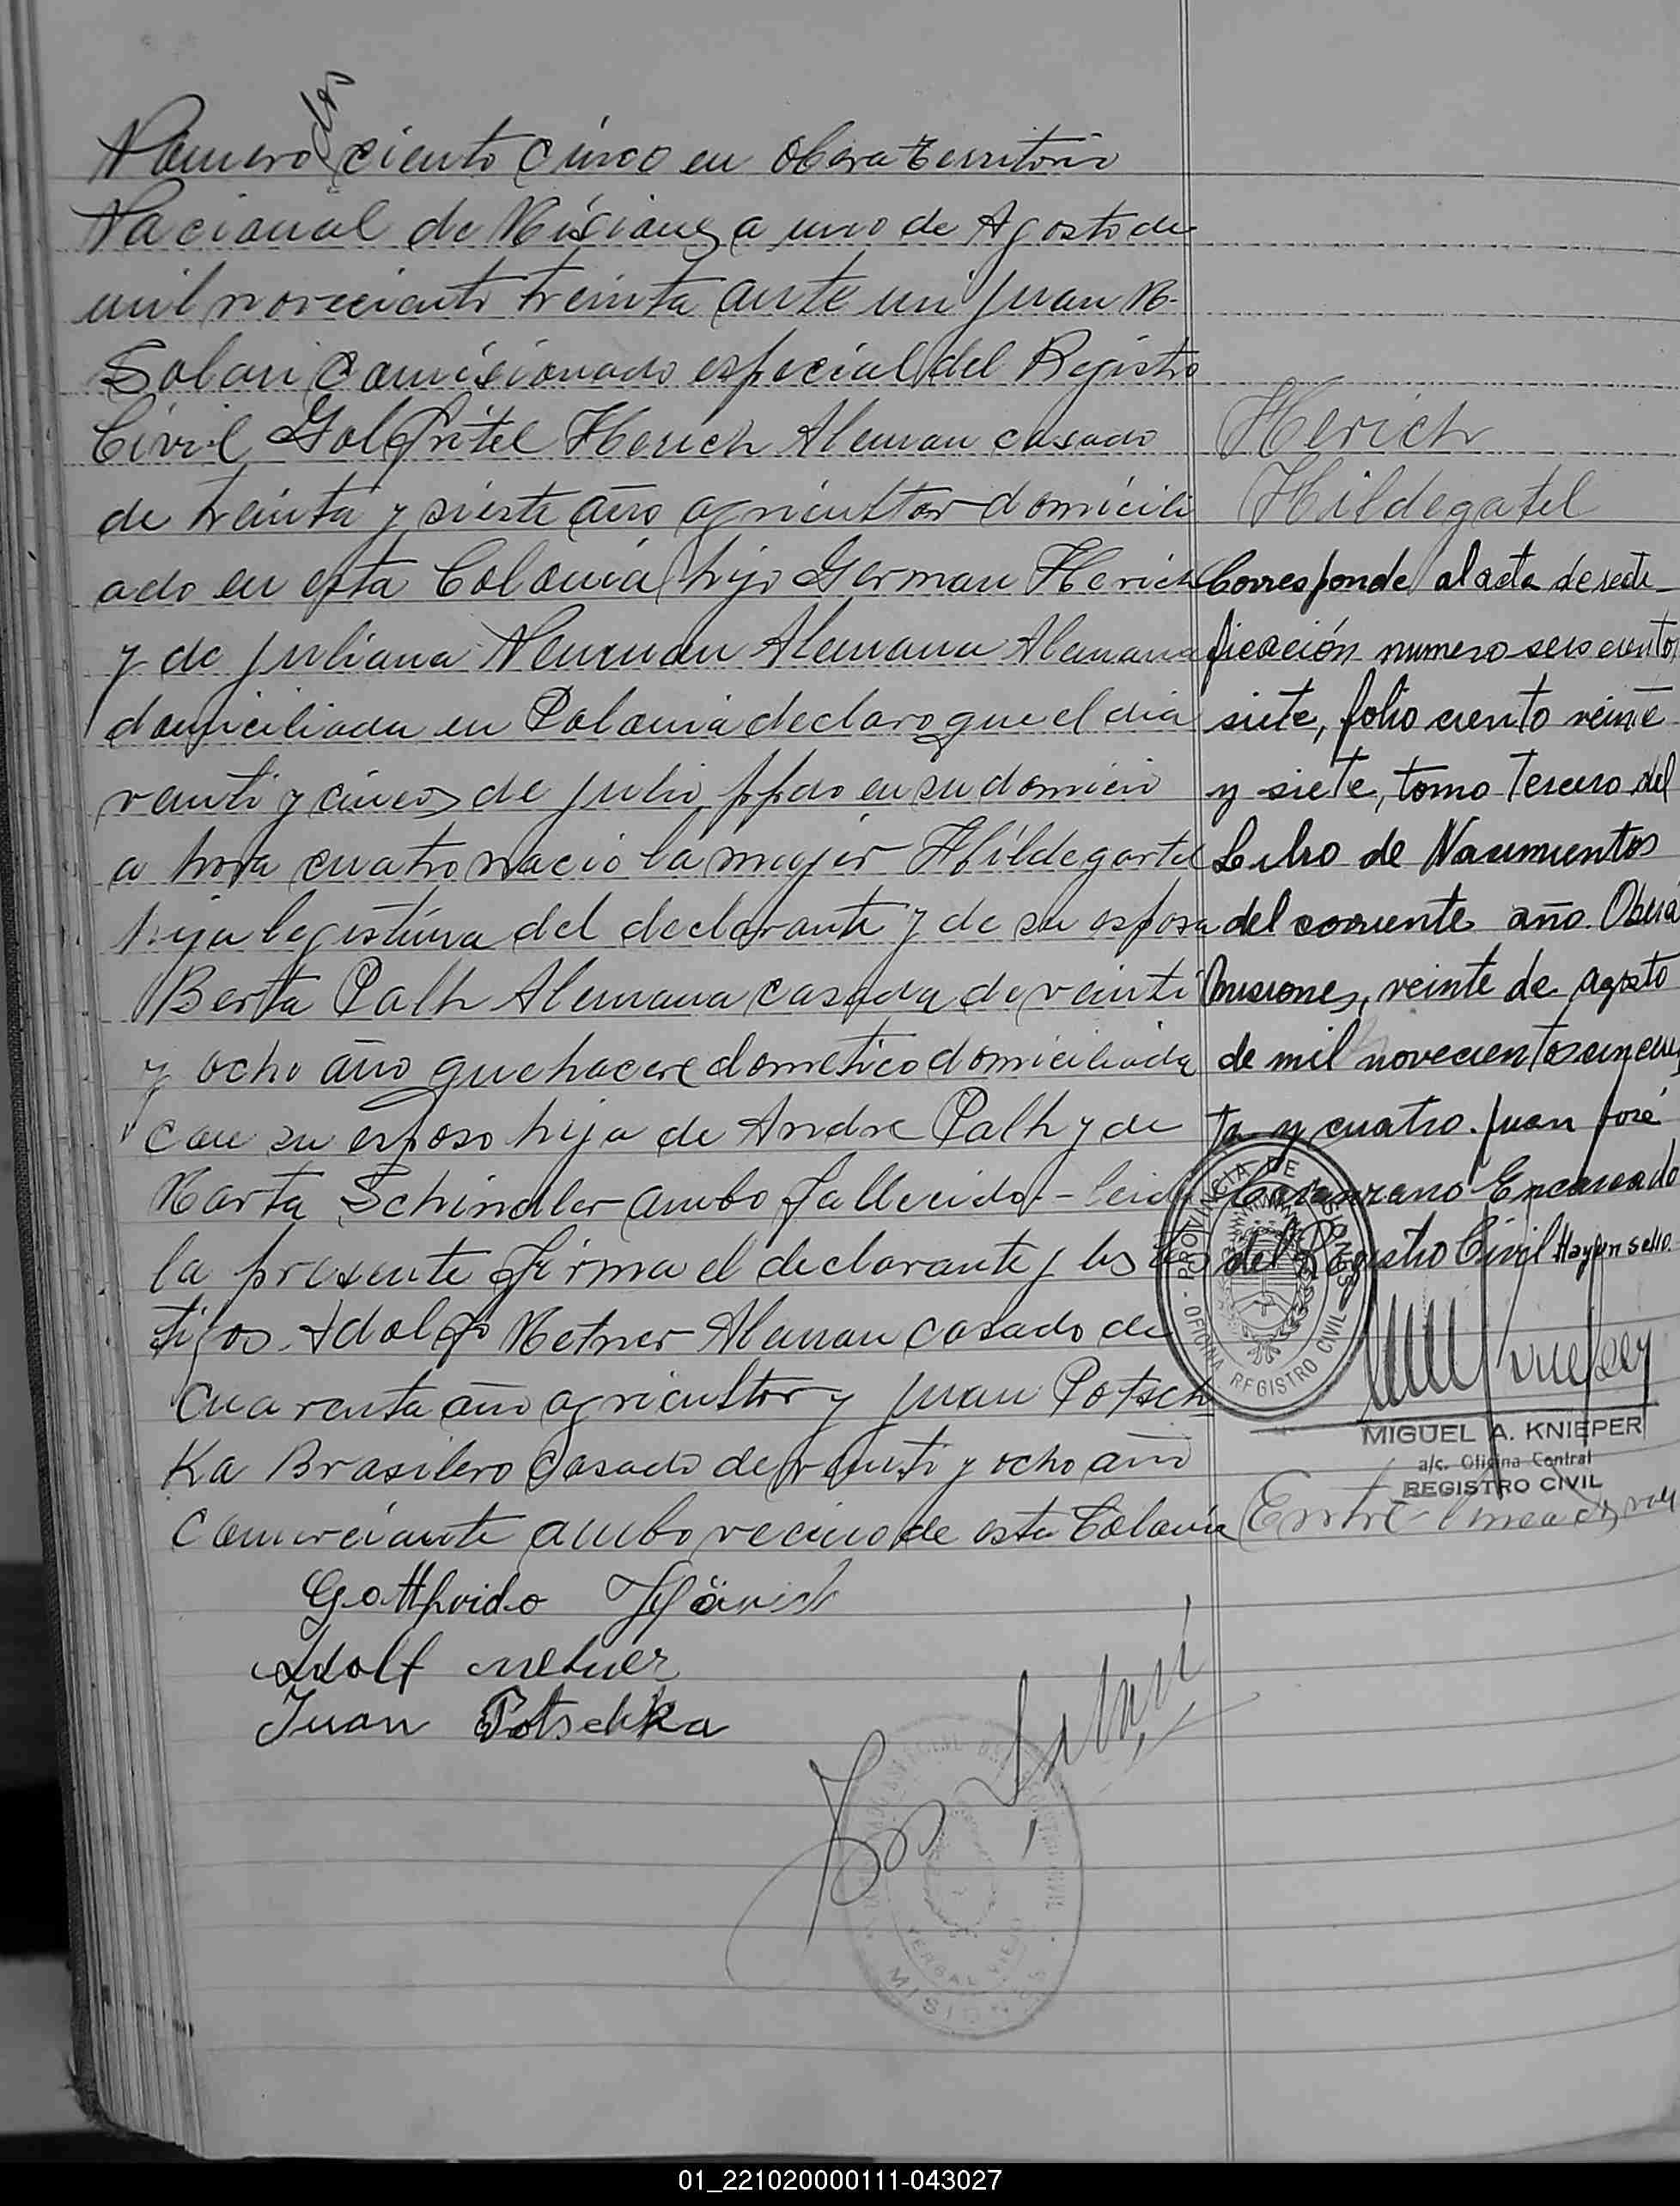 dos
Número ciento cinco en Obera Territorio
Nacional de Misiones a uno de Agosto de
mil noveciento treinta ante mi Juan B.
Solari Comisionado especial del Registro
Civil Golffritel Herich Aleman casado
de treinta y siete año agricultor domicili
ado en esta Colonia hijo German Herich
y de Juliana Neuman Alemana Alemana
domiciliada en Polonia declaro que el dia
veinti y cinco de Julio ppdo en su domicio
a hora cuatro nacio la mujer Hildegartel
hija legistima del declarante y de su esposa
Berta Palh Alemana casada de veinti
y ocho año quehacere dometico domiciliada
con su esposo hija de Andre Palh y de
Marta Schindler ambo fallecido - leida
la presente firma el declarante y los tes
tigos. Adolfo Metner Aleman casado de
cuarenta año agricultor y Juan Potsch
ka Brasilero casado de veinti y ocho año
comerciante ambo vecino de esta Colonia
Gottfrido Hänich
Adolf Metner
Juan Potschka
Herich
Hildegatel
Corresponde al acta de recti-
ficación numero seis cientos
siete, folio ciento veinte
y siete, tomo Tercero del
Libro de Nacimientos
del corriente año. Oberá
Misiones, veinte de agosto
de mil novecientos cincuen
ta y cuatro. Juan José
Encargado
del Registro Civil Hay un sello.
PROVINCIA DE MISIONES
OFICINA REGISTRO CIVIL
MIGUEL A. KNIEPER
a/c. Oficina Central
REGISTRO CIVIL
Entre-linea dos vale
YERBAL VIEJO
MISIONES
01_221020000111-043027